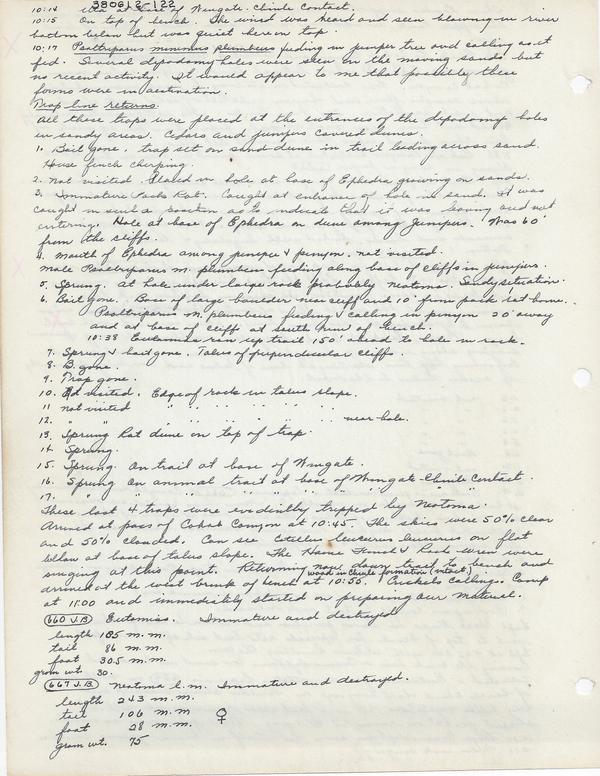 380612-122
10:14 at base of Wingate-Chinle Contact.
10:15 On top of bench. The wind was heard and seen blowing in river
bottom below but was quiet here on top.
10:17 Psaltriparus minimus plumbeus feeding in juniper tree and calling as it
fed. Several dipodomy holes were seen in the moving sands but
no recent activity. It would appear to me that possibly these
forms were in aestivation.
Trap line returns.
All these traps were placed at the entrances of the dipodomy holes
in sandy areas. Cedars and junipers covered dunes.
1. Bait gone. trap set on sand-dune in trail leading across sand.
House finch chirping.
2. Not visited. Placed in hole at base of Ephedra growing on sands.
3. Immature Pack Rat. Caught at entrance of hole in sand. It was
caught in such a position as to indicate that it was leaving and not
entering. Hole at base of Ephedra on dune among Junipers. Was 60'
from the cliffs.
4. Mouth of Ephedra among juniper & pinyon. not visited.
Male Psaltriparus m. plumbeus feeding along base of cliffs in junipers.
5. Sprung. At hole under large rock probably Neotoma. Sandy situation.
6. Bait gone. Base of large boulder near cliff and 10' from pack rat home.
Psaltriparus m. plumbeus feeding & calling in pinyon 20' away
and at base of cliff at south rim of bench.
10:38 Eutamias ran up trail 150' ahead to hole in rock.
7. Sprung & bait gone. Talus of perpendicular cliffs.
8. B. gone.
9. Trap gone.
10. visited. Edge of rocks in talus slope.
11 not visited " " " " " "
12. " " " " " " " " near hole.
13. Sprung Rat dung on top of trap.
14 Sprung.
15. Sprung. On trail at base of Wingate.
16. Sprung On animal trail at base of Wingate-Chinle Contact.
17. " " " " " " " " "
These last 4 traps were evidently tripped by Neotoma.
Arrived at pass of Canyon at 10:45. The skies were 50% clear
and 50% clouded. Can see Citellus leucurus leucurus on flat
below at base of talus slope. The House Finch & Rock Wren were
singing at this point. Returning now down trail to bench and
woods in Chinle formation (intact)
arrived at the west brink of bench at 10:55. Crickets Calling. Camp
at 11:00 and immediately started on preparing our material.
660 J.B Eutamias. Immature and destroyed
length 185 m.m.
tail 86 m.m.
foot 30.5 m.m.
gram wt. 30.
667 J.B Neotoma l.m. Immature and destroyed.
length 243 m.m.
tail 106 m.m ♀
foot 28 m.m.
gram wt. 75